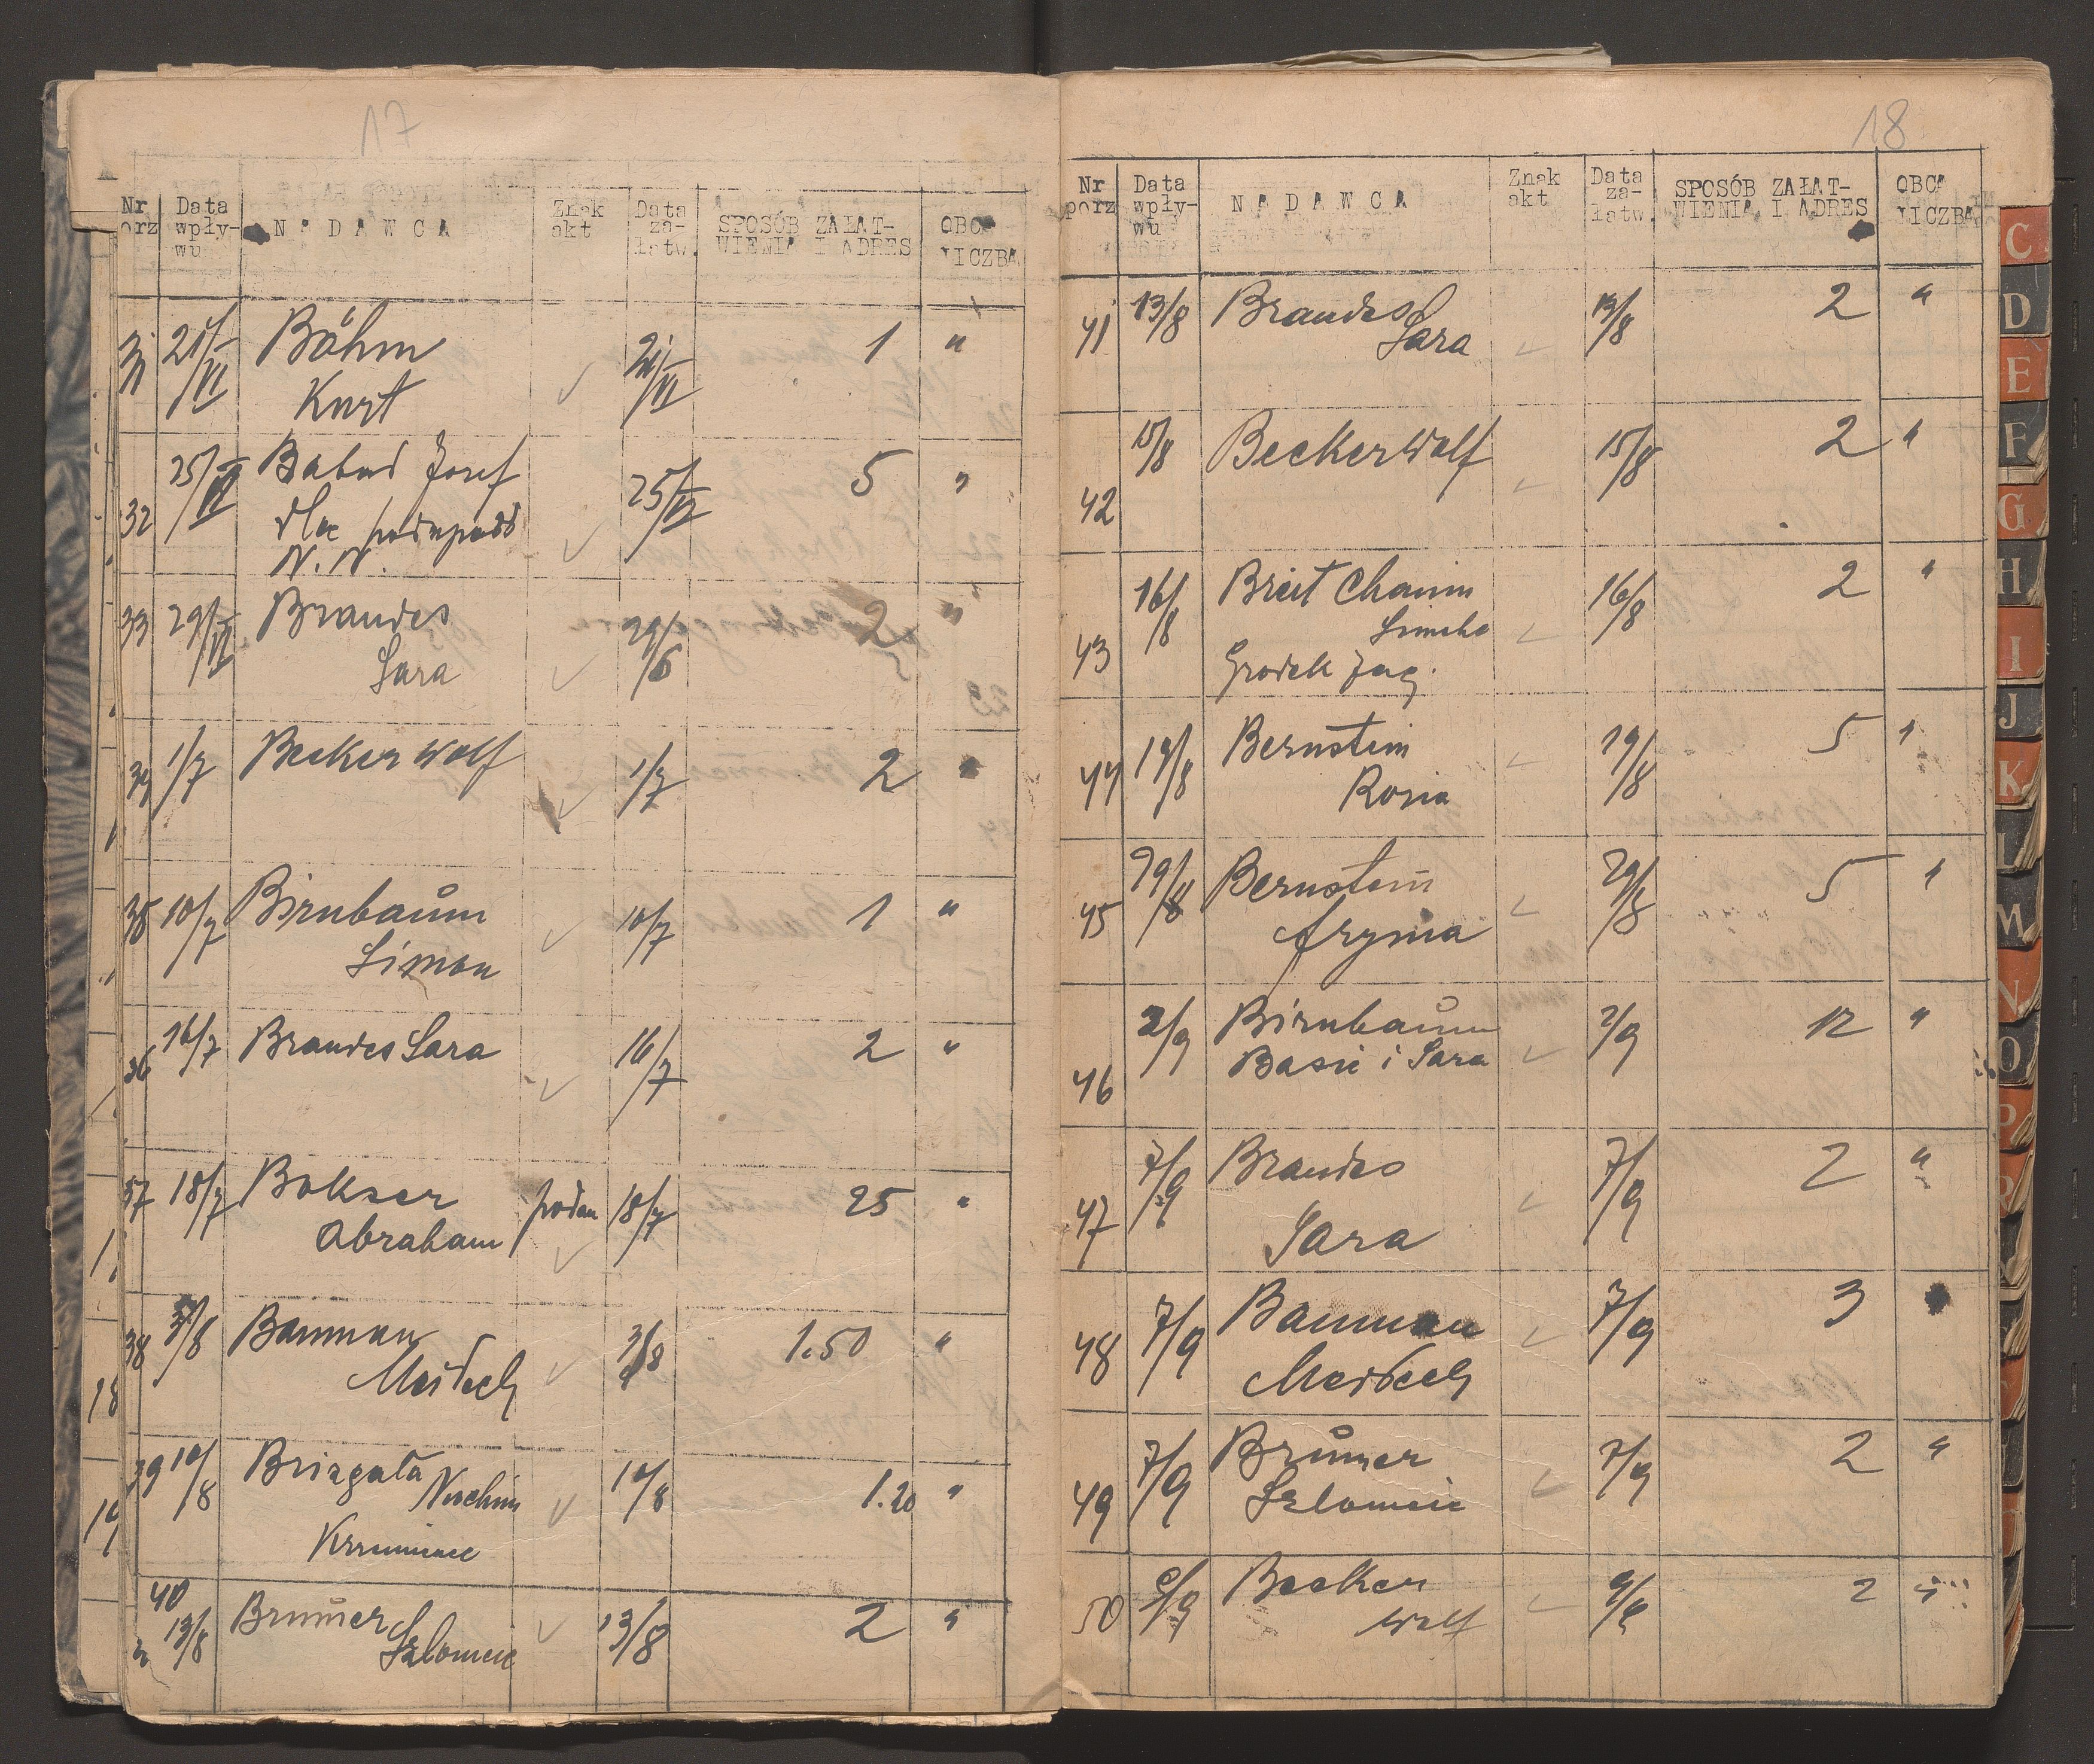 17
Nr porz Data wpły-wu NADAWCA Znak akt Data za-łatw. SPOSÓB ZAŁAT-WIENIA I ADRES OBCA LICZBA
31 21/VI Böhm 21/VI 1 "
Kurt
32 25/VI Babad Josef 25/VI 5 "
dla
N. N.
33 29/VI Brandes 29/6 2 "
Sara
34 1/7 Becker Wolf 1/7 2 "
35 10/7 Birnbaům 10/7 1 "
Simon
36 16/7 Brandes Sara 16/7 2 "
37 18/7 Bokser podan 18/7 25 "
Abraham
38 3/8 Bauman 3/8 1.50 "
Mordech
39 10/8 Brizgala 10/8 1.20 "
Nuchim
Krzemieniec
40
13/8 Brůmer 13/8 2 "
Szlomcie
18
Nr porz Data wpły-wu NADAWCA Znak akt Data za-łatw. SPOSÓB ZAŁAT-WIENIA I ADRES OBCA LICZBA
41 13/8 Brandes 13/8 2 "
Sara
42 15/8 Becker Wolf 15/8 2 "
43 16/8 Breit Chaim 16/8 2 "
Simcha
Grodek Jag.
44 19/8 Bernstein 19/8 5 "
Rozia
45 29/8 Bernstein 29/8 5 "
Fryma
46 2/9 Birnbaům 2/9 12 "
Basie i Sara
47 7/9 Brandes 7/9 2 "
Sara
48 7/9 Bauman 7/9 3
Mordech
49 7/9 Brůmer 7/9 2 "
Szlomcie
50 9/9 Becker 9/9 2 "
Wolf
C
D
E
F
G
H
I
J
K
L
M
N
O
P
R